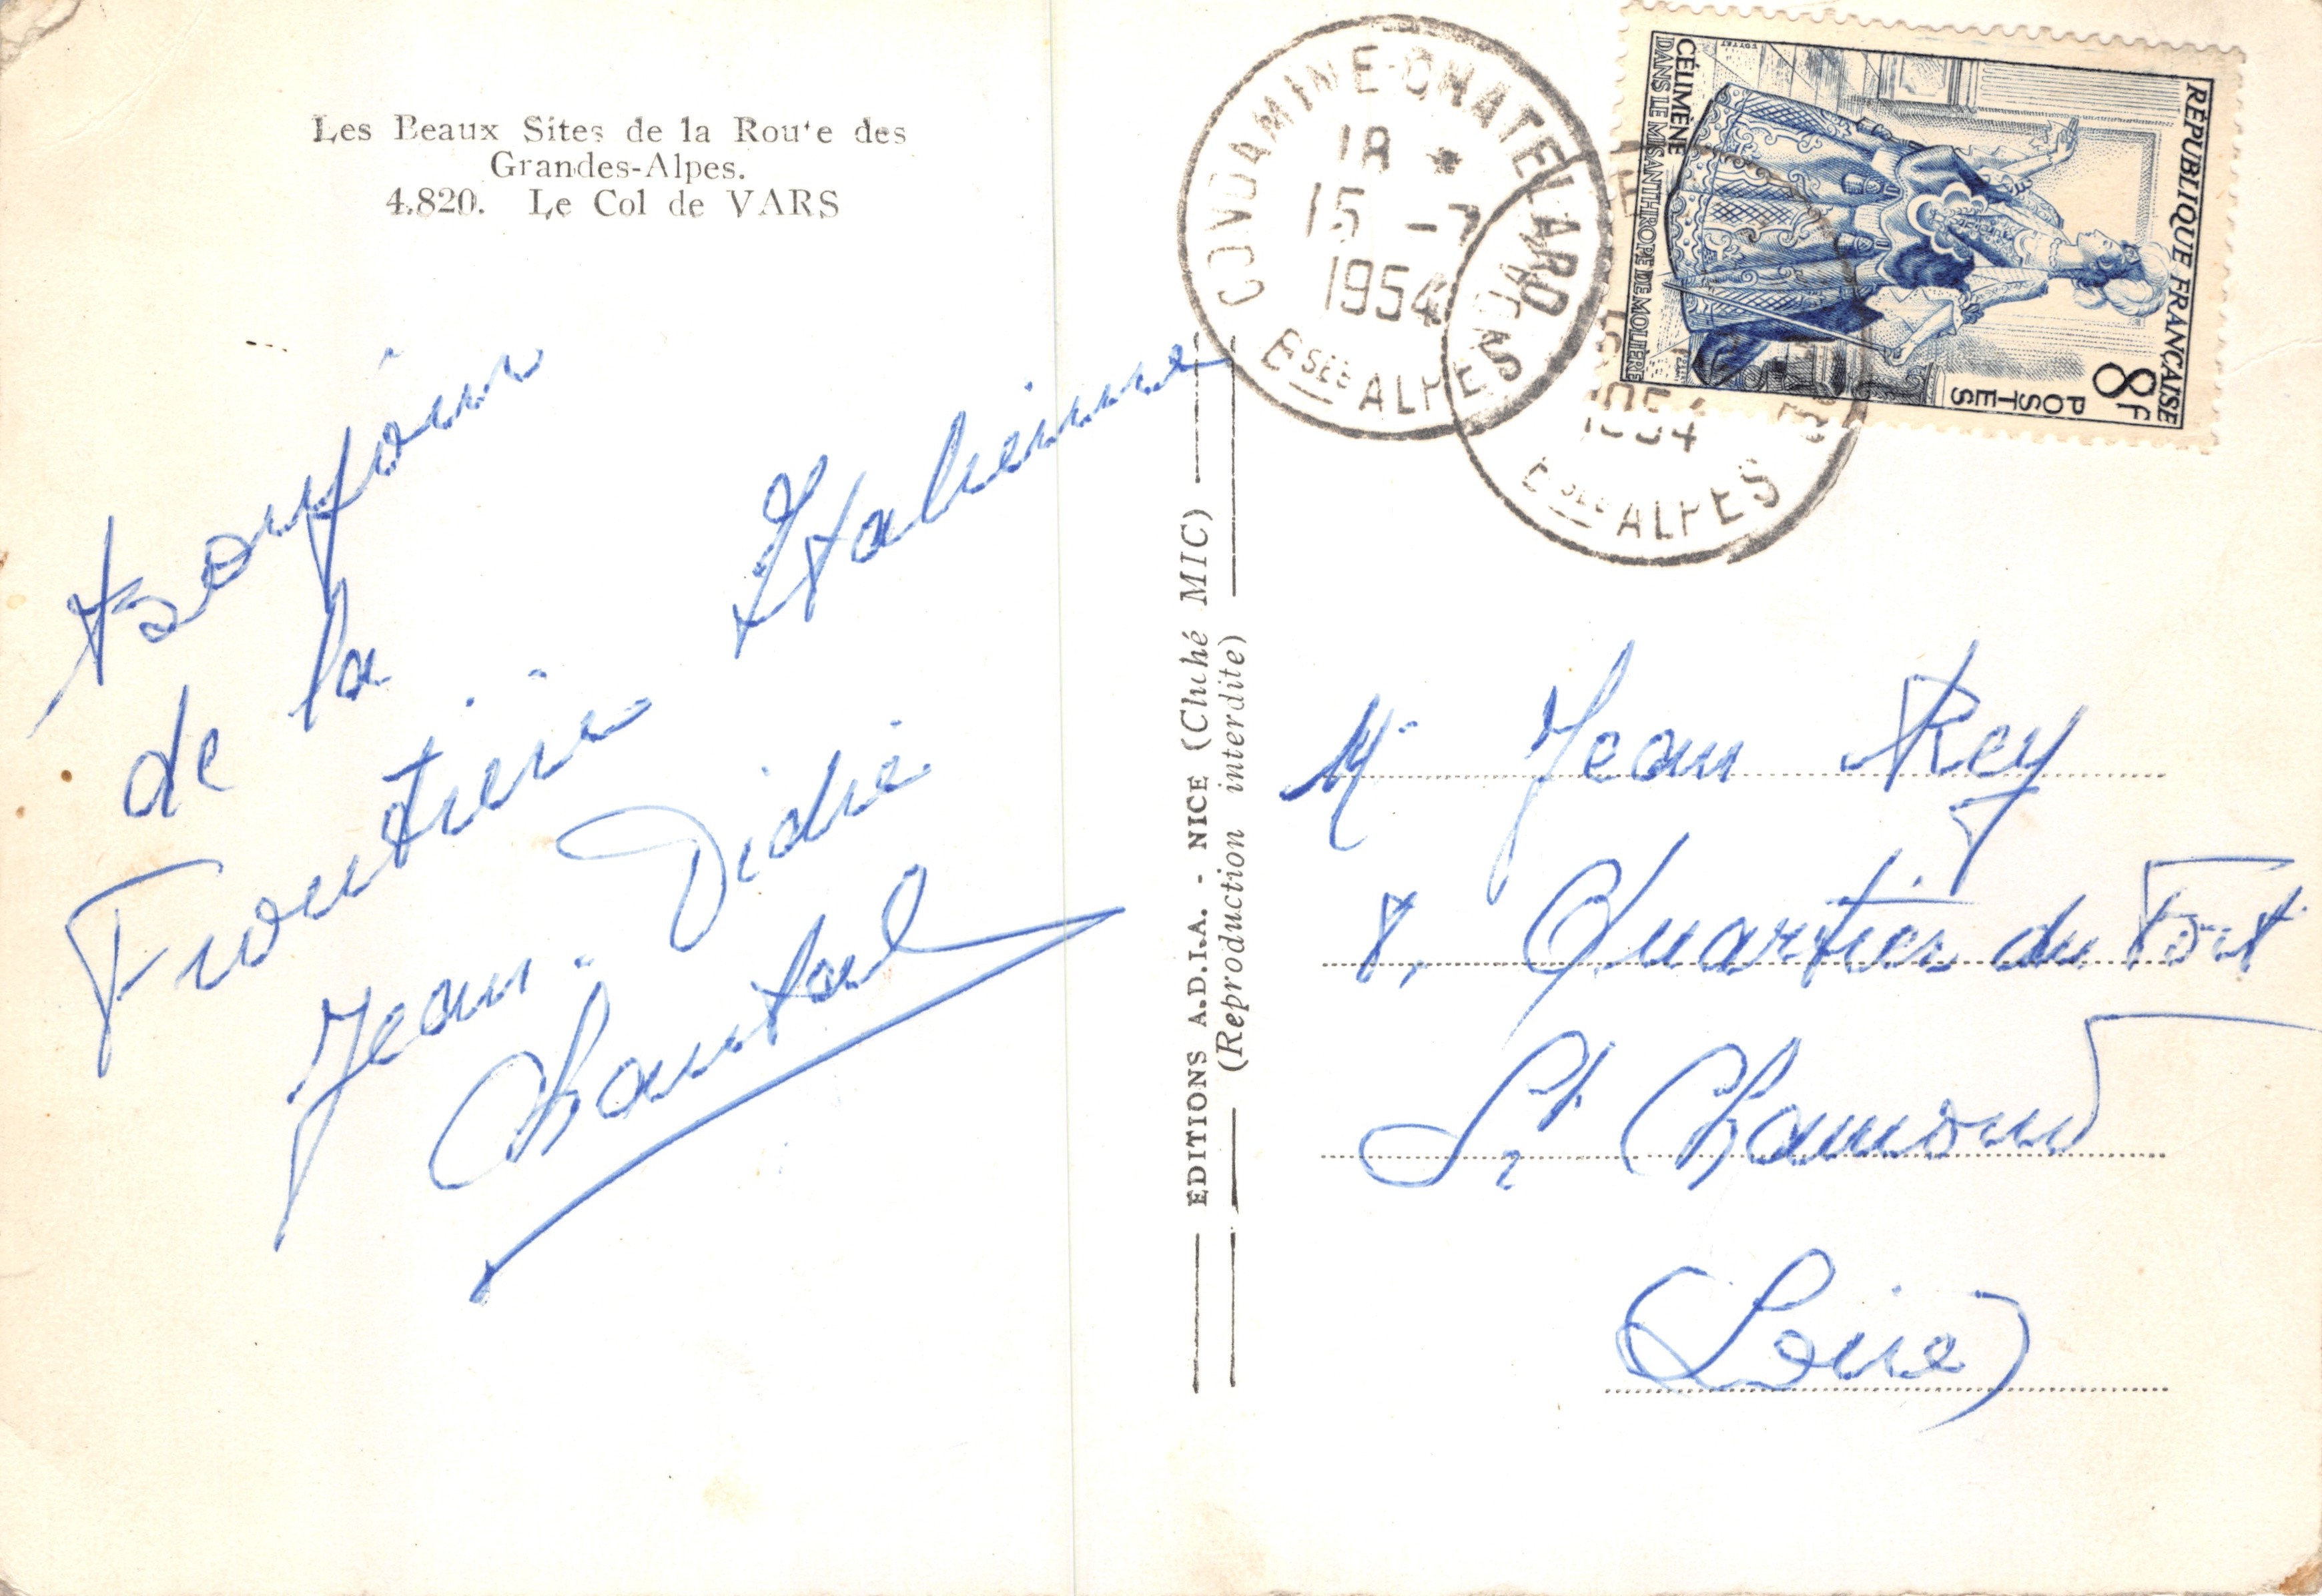 Les Beaux Sites de la Route des
Grandes-Alpes.
4.820. Le Col de VARS
Bonjour
de la
Frontière Italienne
Jean. Didié
Chantal
EDITIONS A.D.I.A. - NICE (Cliché MIC)
(Reproduction interdite)
CONDAMINE-CHATELARD
18 *
15 -7
1954
Bses ALPES
1954
Bses ALPES
RÉPUBLIQUE FRANÇAISE
8F
POSTES
CÉLIMÈNE
DANS LE MISANTHROPE DE MOLIÈRE
Mr Jean Rey
8, Quartier du Fort
St Chamond
(Loire)